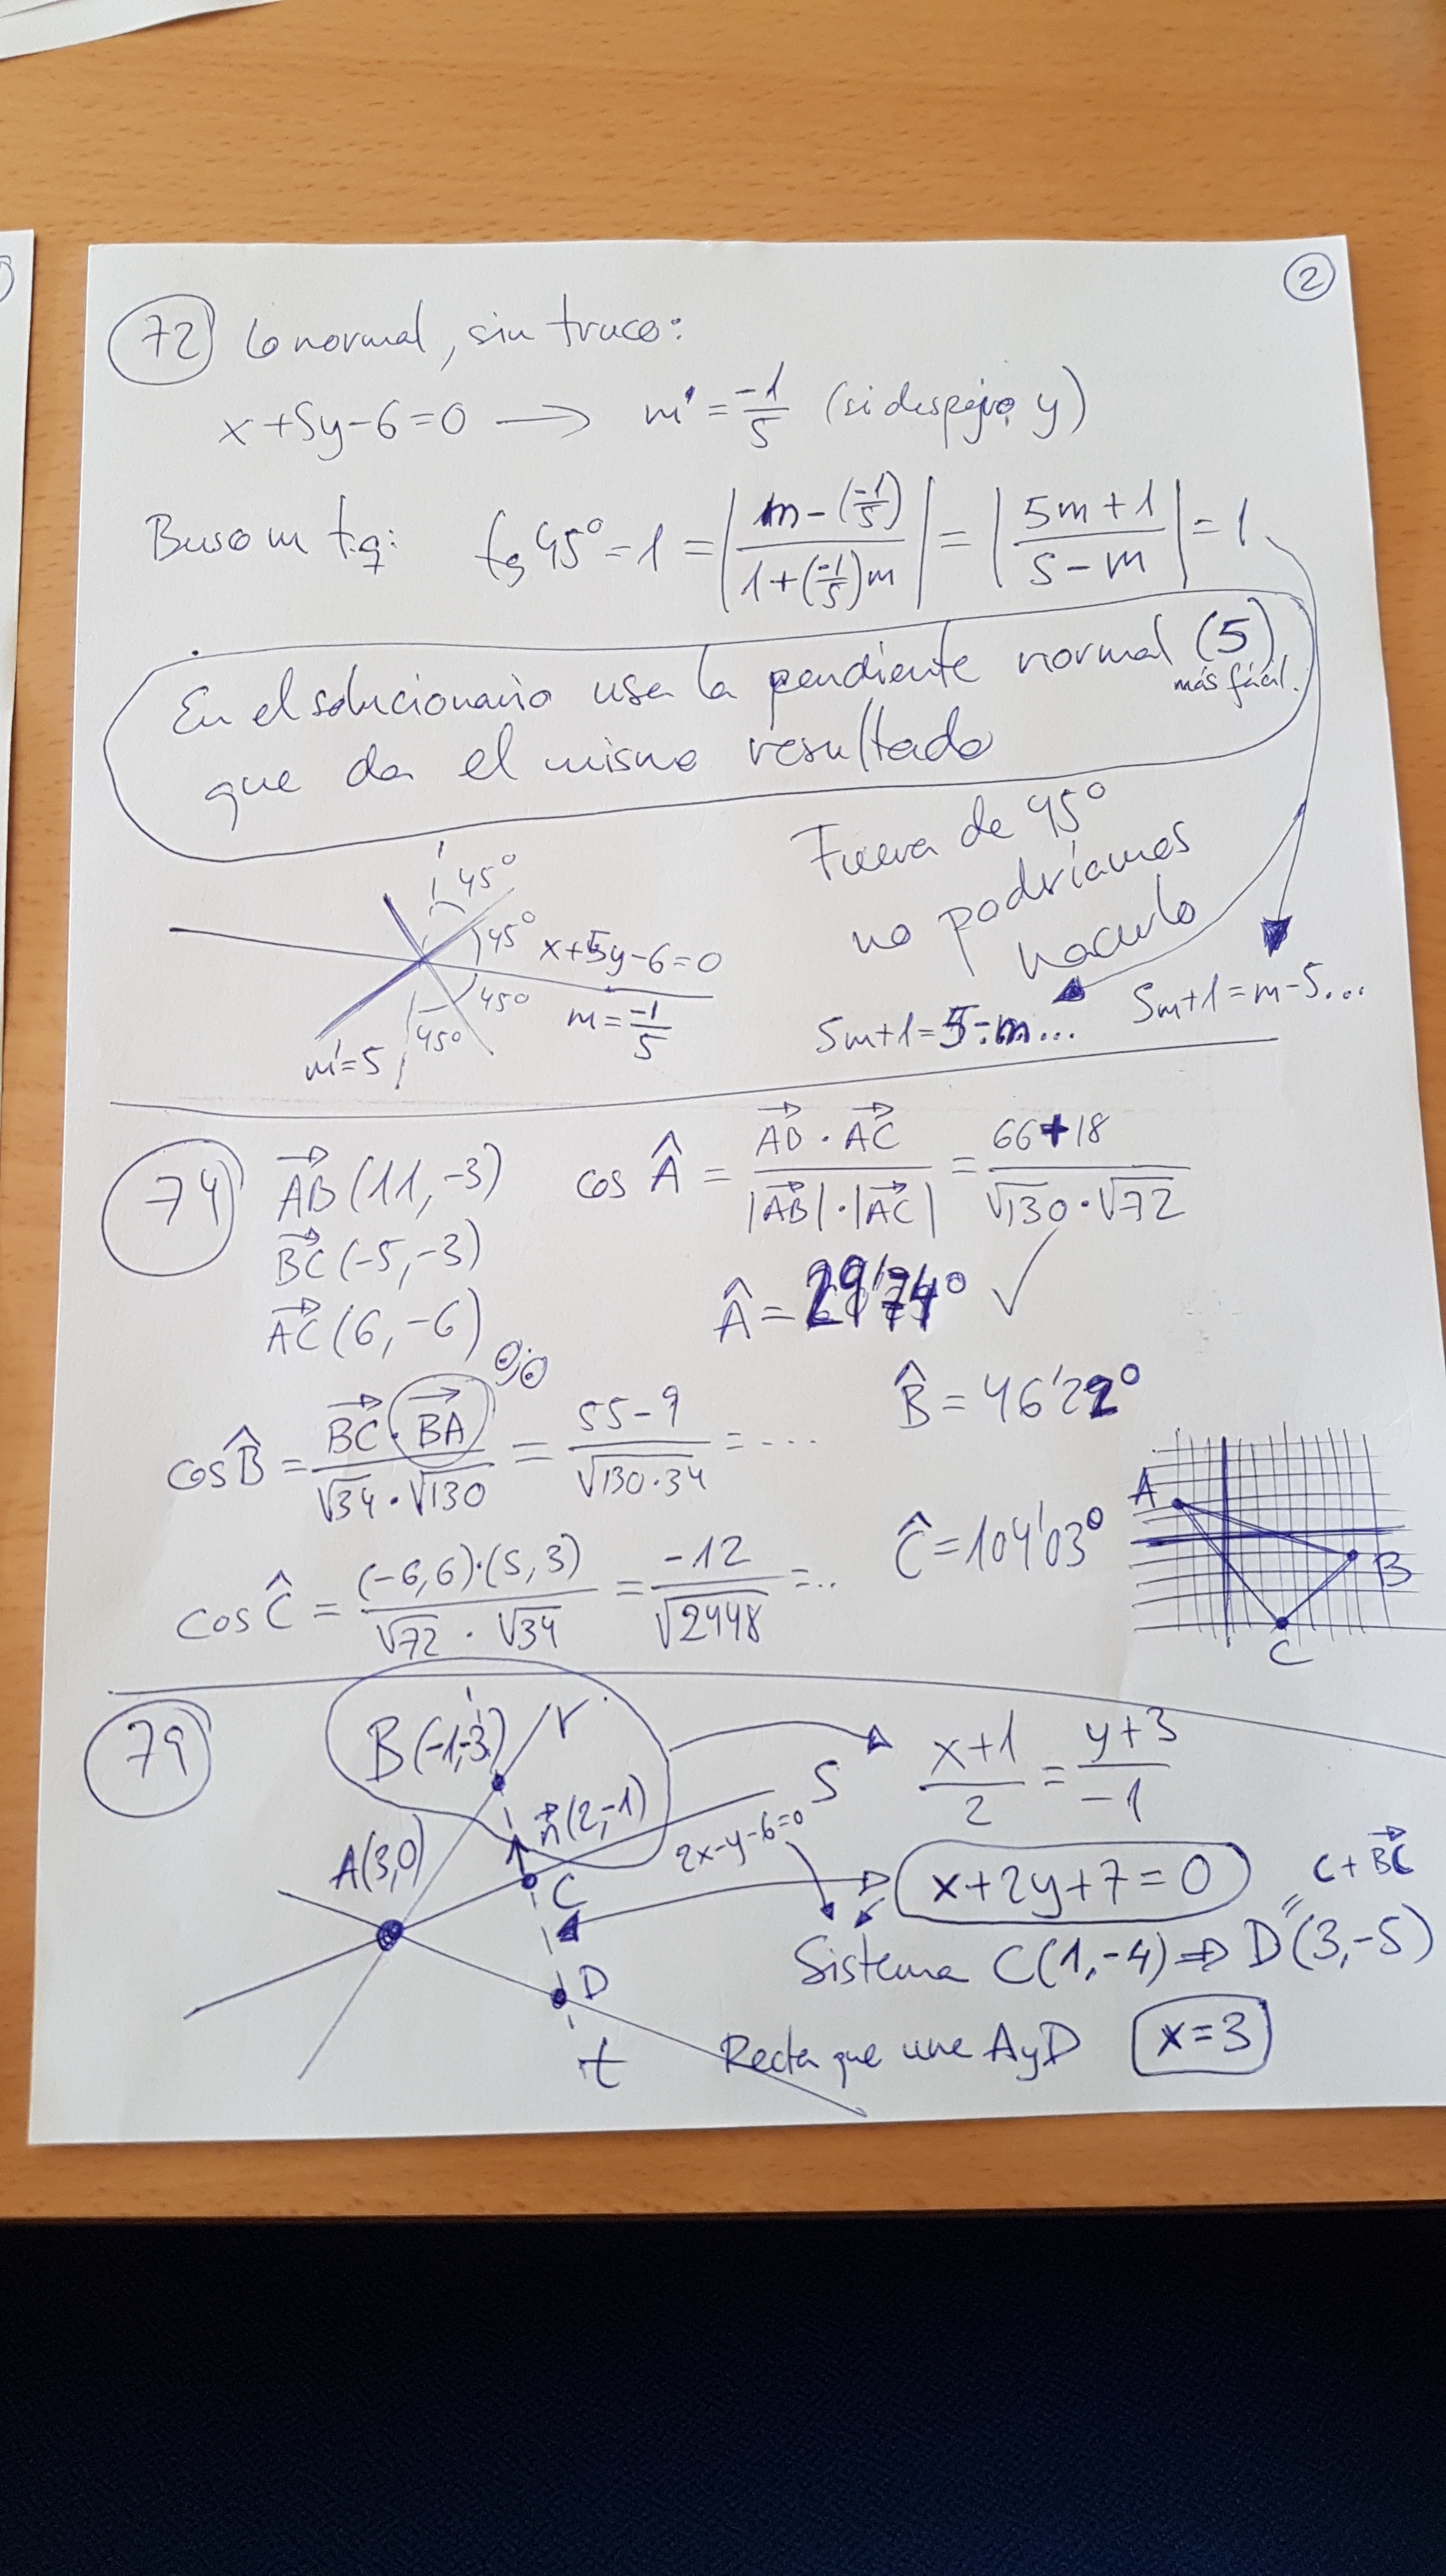 2
72 Lo normal, sin truco:
x+5y-6=0 → m' = -1/5 (si despejo y)
Busco m t.q: tg 45° = 1 = |(m-(-1/5))/(1+(-1/5)m)| = |(5m+1)/(5-m)| = 1
En el solucionario usa la pendiente normal (5)
más fácil.
que da el mismo resultado
Fuera de 45°
no podríamos
hacerlo
5m+1=5-m...
5m+1=m-5...
45°
45°
x+5y-6=0
45°
m=-1/5
45°
m'=5
74 AB→(11,-3)
BC→(-5,-3)
AC→(6,-6)
cos Â = (AB→·AC→)/(|AB→|·|AC→|) = (66+18)/(√130·√72)
Â = 29'74° ✓
cos B̂ = (BC→·BA→)/(√34·√130) = (55-9)/√(130·34) = ...
B̂ = 46'22°
cos Ĉ = ((-6,6)·(5,3))/(√72·√34) = -12/√2448 = ..
Ĉ = 104'03°
A
B
C
79
B(-1,-3)
r
n→(2,-1)
S
A(3,0)
C
2x-y-6=0
D
t
(x+1)/2 = (y+3)/-1
x+2y+7=0
C+BC→
=
Sistema C(1,-4) ⇒ D(3,-5)
Recta que une A y D x=3